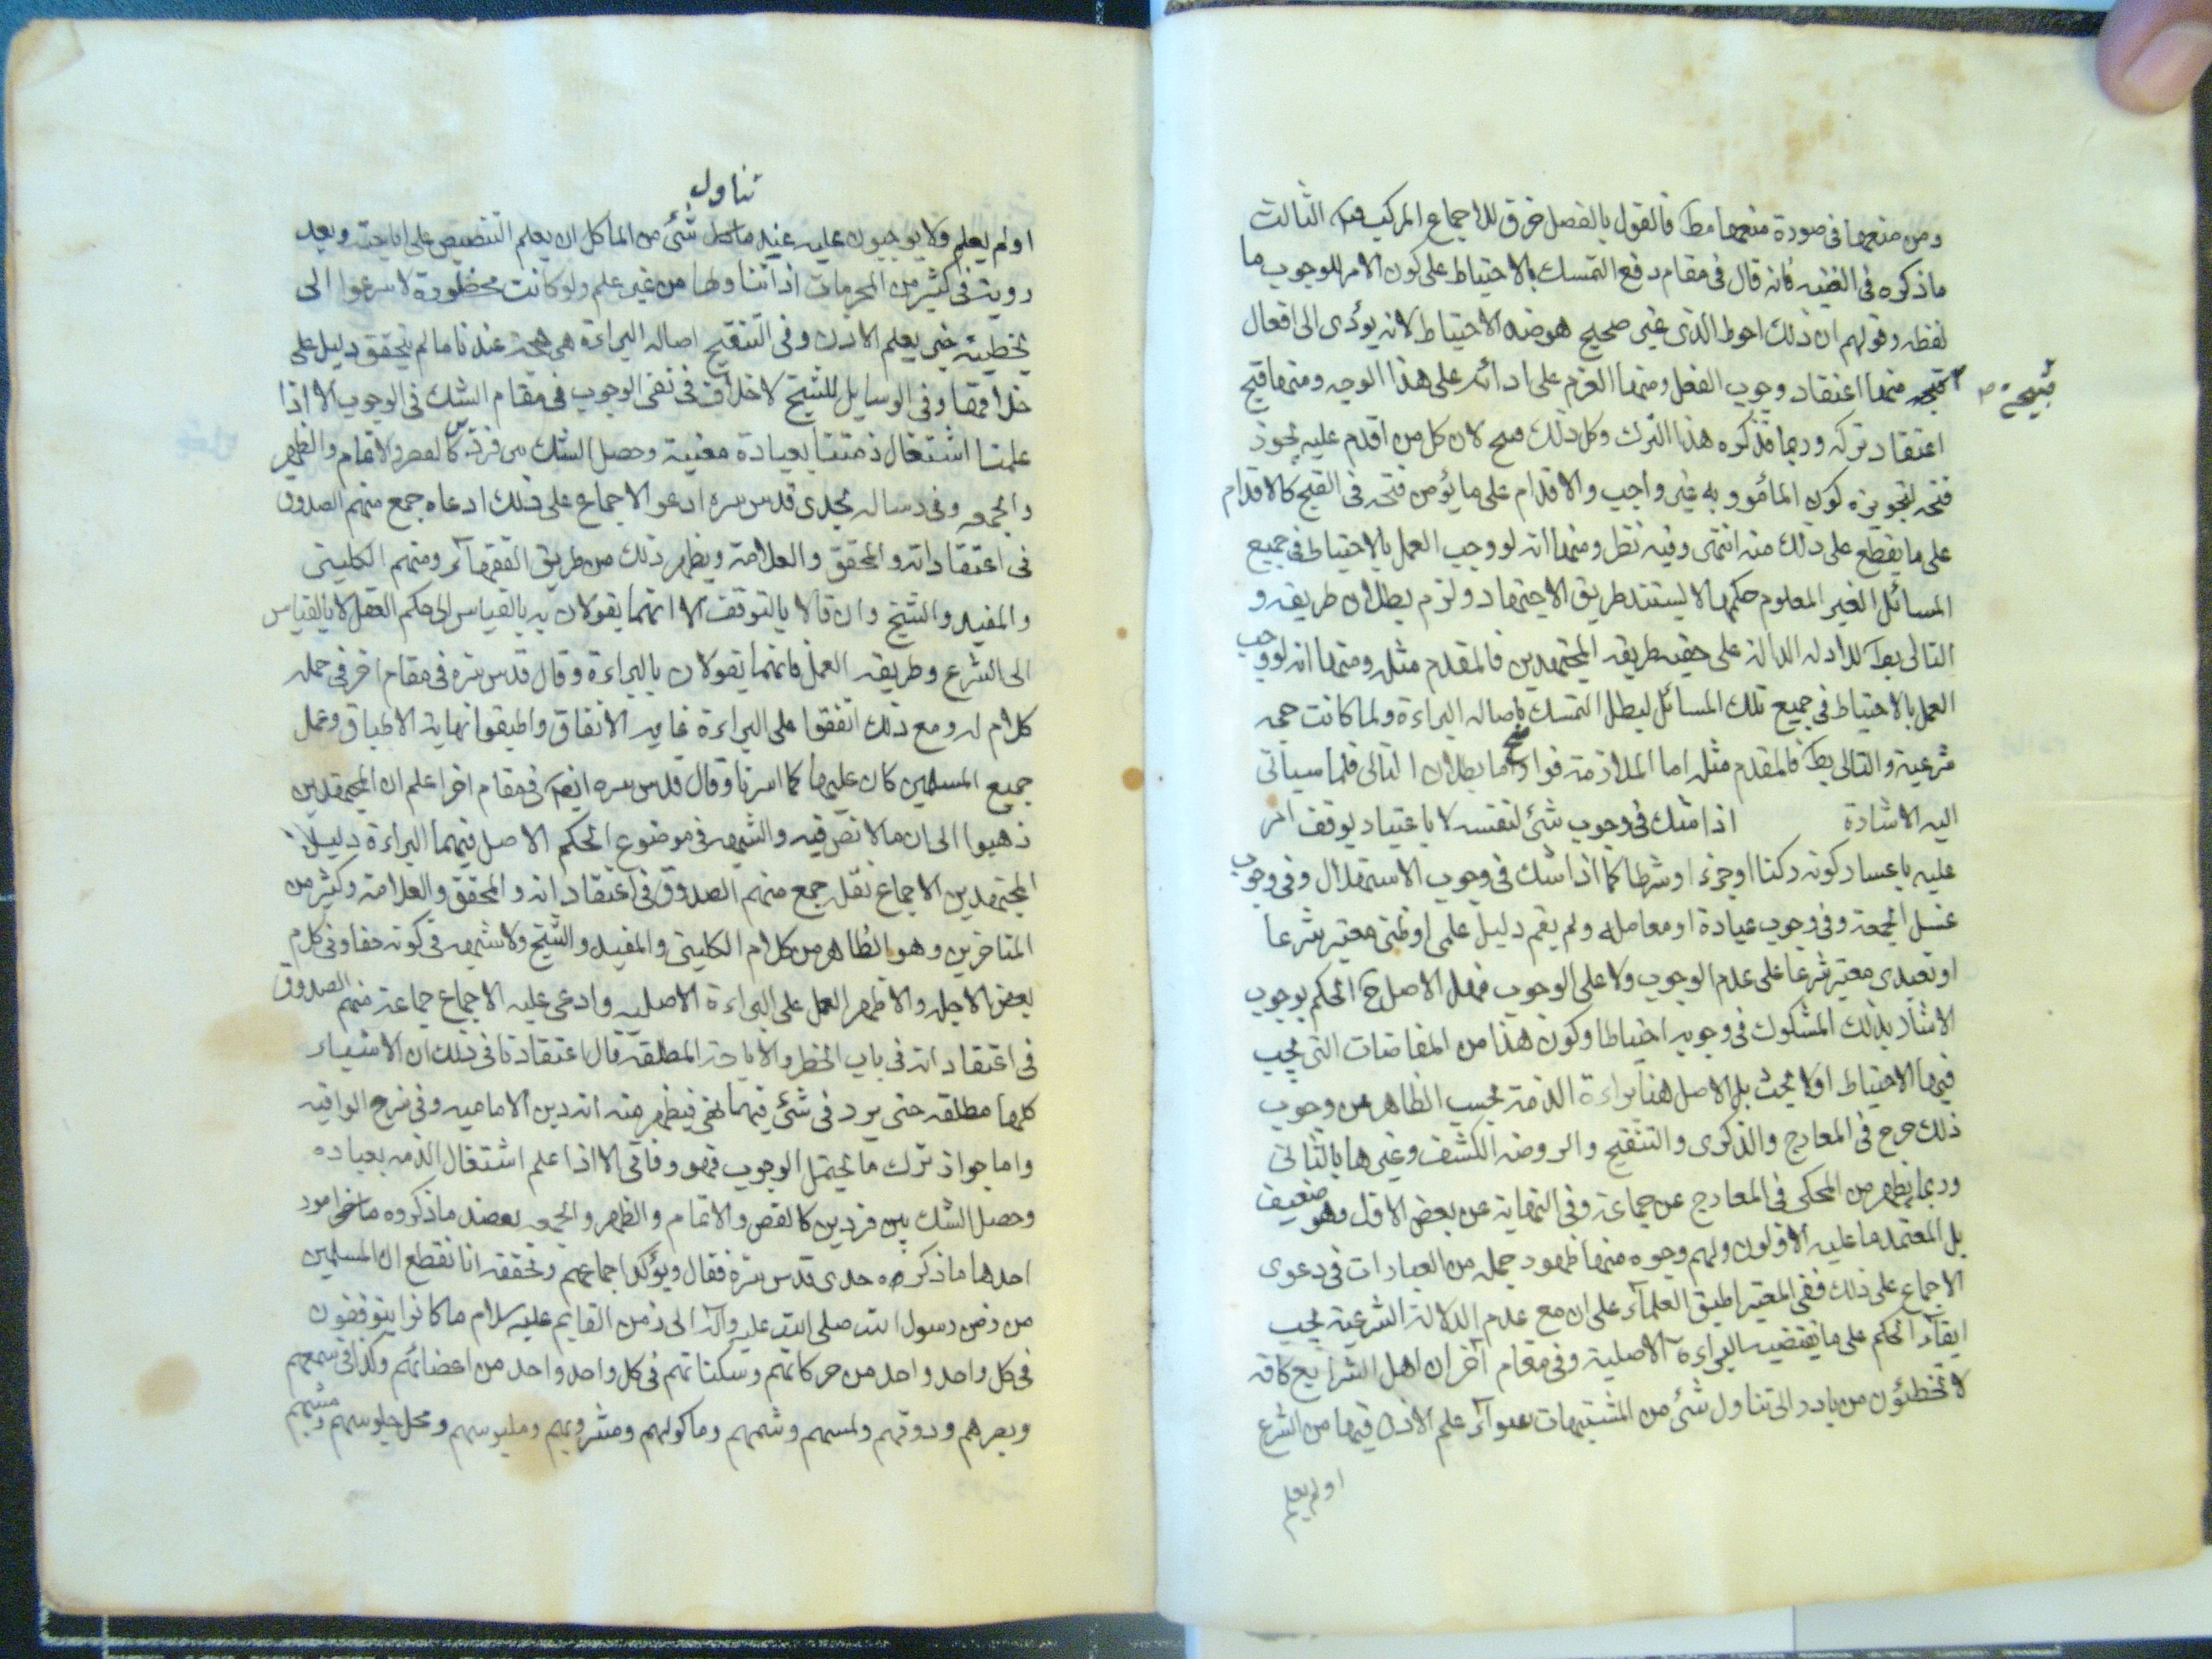 ومن منعها في صورة منعها مط فالقول بالفصل خرق للاجماع المركب الثالث
ما ذكره في الغنيه فانه قال في مقام دفع التمسك بالاحتياط على كون الامر للوجوب ما
لفظه وقولهم ان ذلك احوط الذي غير صحيح هو ضد الاحتياط لانه يؤدى الى افعال
قبيحة منها اعتقاد وجوب الفعل ومنها العزم على ادائه على هذا الوجه ومنها قبح
اعتقاد تركه وربما هذا الترك وكل ذلك قبيح لان كل من اقدم عليه يجوز
قبحه لتجويزه كون المأمور به غير واجب والاقدام على ما لا يؤمن قبحه في القبح كالاقدام
على ما يقطع على ذلك منه انتهى وفيه نظر ومنها انه لو وجب العمل بالاحتياط في جميع
المسائل الغير المعلوم حكمها لا ليستند طريق الاجتهاد ولزم بطلان طريقه و
التالى بط للادله الدالة على حقيه طريقه المجتهدين فالمقدم مثله ومنها انه لو وجب
العمل بالاحتياط في جميع تلك المسائل لبطل التمسك باصاله البراءة ولما كانت حجه
شرعية والتالى بط فالمقدم مثله اما الملازمة فواضح واما بطلان التالى فلما سياتى
اليه الاشارة اذا شك في وجوب شئ لنفسه لا باعتبار توقف امر
عليه باعتبار كونه ركنا او جزء او شرطا كما اذا شك في وجوب الاستهلال وفي وجوب
غسل الجمعة وفي وجوب عبادة او معاملة ولم يقم دليل علمى او ظنى معتبر شرعا
او تعبدى معتبر شرعا على عدم الوجوب ولا على الوجوب فهل الاصل ح الحكم بوجوب
الاتيان بذلك المشكوك في وجوبه احتياطا وكون هذا من المقامات التي يجب
فيها الاحتياط او لا يجب بل الاصل هنا براءة الذمة بحسب الظاهر عن وجوب
ذلك صرح في المعارج والذكرى والتنقيح والروضه الكشف وغيرها بالثانى
وربما يظهر من المحكى في المعارج عن جماعة وفي النهاية عن بعض الاول وهو ضعيف
بل المعتمد ما عليه الاولون ولهم وجوه منها ظهور جملة من العبارات في دعوى
الاجماع على ذلك ففي المعتبر اطبق العلمآء على ان مع عدم الدلالة الشرعية يجب
ابقآء الحكم على ما يقتضيه البراءة الاصلية وفي مقام آخر ان اهل الشرايع كافة
لا تخطئون من بادر الى تناول شئ من المشتبهات سوآء علم الاذن فيها من الشرع
او لم يعلم
قبيحة ص
تناول
او لم يعلم ولا يوجبون عليه عند شئ من الماكل ان يعلم التنصيص على اباحته وبعد
رويته في كثير من المحرمات اذا تناولها من غير علم ولو كانت محظورة لاسرعوا الى
تخطيئه حتى يعلم الاذن وفي التنقيح اصاله البراءة هى حجة عندنا ما لم يتحقق دليل على
خلافها وفي الوسايل للشيخ لا خلاف في نفى الوجوب في مقام الشك في الوجوب الا اذا
علمنا اشتغال ذمتنا بعبادة معينة وحصل الشك بين فردين كالقصر والاتمام والظهر
والجمعه وفي رسالة لجدى قدس سره ادعو الاجماع على ذلك ادعاه جمع منهم الصدوق
في اعتقاداته والمحقق والعلامة ويظهر ذلك من طريق الفقهآء ومنهم الكلينى
والمفيد والشيخ وان قالا بالتوقف الا انهما يقولان به بالقياس الى حكم العقل لا بالقياس
الى الشرع وطريقه العمل فانهما يقولان بالبراءة وقال قدس سره في مقام اخر في جملة
كلام له ومع ذلك اتفقوا على البراءة غاية الاتفاق واطبقوا نهاية الاطباق وعمل
جميع المسلمين كان عليها كما اشرنا وقال قدس سره ايضا في مقام اخر اعلم ان المجتهدين
ذهبوا الى ان ما لا نص فيه والشبهه في موضوع الحكم الاصل فيهما البراءة دليل
المجتهدين الاجماع نقله جمع منهم الصدوق في اعتقاداته والمحقق والعلامة وكثير من
المتاخرين وهو الظاهر من كلام الكلينى والمفيد والشيخ ولا شبهه في كونه حقا وفي كلام
بعض الاجلة والاظهر العمل على البراءة الاصليه وادعى عليه الاجماع جماعة منهم الصدوق
في اعتقاداته في باب الحظر والاباحة المطلقة قال اعتقادنا في ذلك ان الاشياء
كلها مطلقه حتى يرد في شئ فيها نهى فيظهر منه انه دين الاماميه وفي شرح الوافيه
واما جواز ترك ما يحتمل الوجوب فهو وفاقى الا اذا علم اشتغال الذمه بعباده
وحصل الشك بين فردين كالقصر والاتمام والظهر والجمعه يعضد ما ذكروه امور
احدها ما ذكره جدى قدس سره فقال ويؤكد اجماعهم وتحققه انا نقطع ان المسلمين
من زمن رسول الله صلى الله عليه وآله الى زمن القايم عليه سلام ما كانوا يتوقفون
في كل واحد واحد من حركاتهم وسكناتهم في كل واحد واحد من اعضائهم وكذا في سمعهم
وبصرهم وذوقهم ولمسهم وشمهم وماكولهم ومشروبهم وملبوسهم ومحل جلوسهم ومشيهم